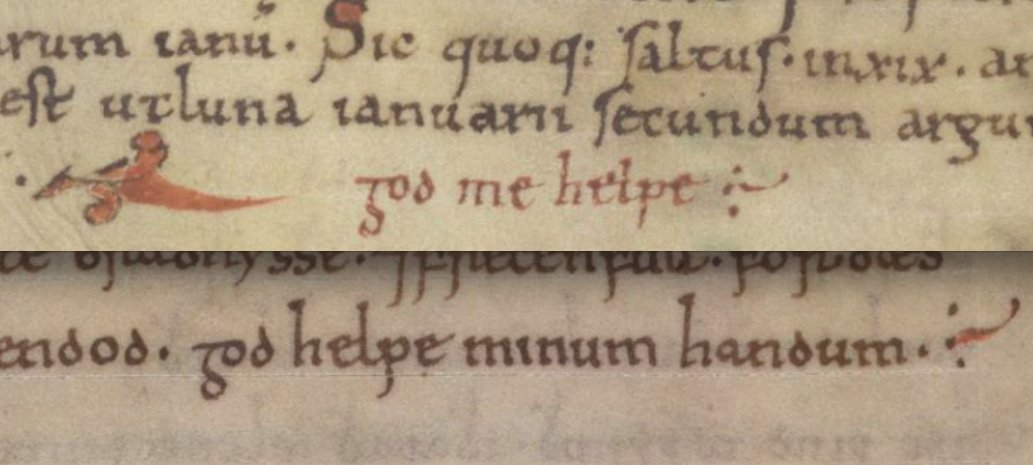 rum ianū. Sic quoq: saltus. inxix. ar
est utluna ianuarii secundum argu
. god me helpe :~
endod. god helpe minum handum. :~